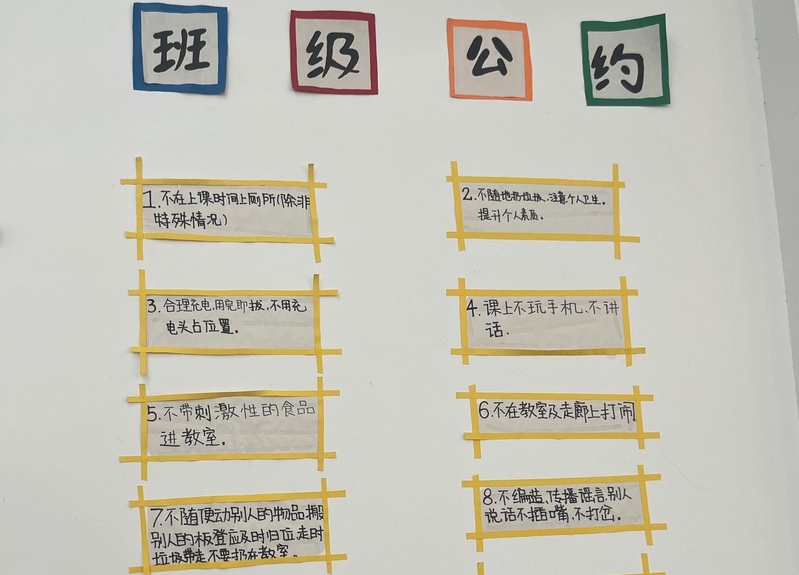 班级公约
1.不在上课时间上厕所(除非
特殊情况)
2.不随地扔垃圾,注意个人卫生。
提升个人素质。
3.合理充电,用完即拔,不用充
电头占位置。
4.课上不玩手机、不讲
话.
5.不带刺激性的食品
进教室。
6.不在教室及走廊上打闹
7.不随便动别人的物品,搬
别人的板登应及时归位,走时
垃圾带走不要扔在教室。
8.不编造、传播谣言,别人
说话不插嘴,不打岔。